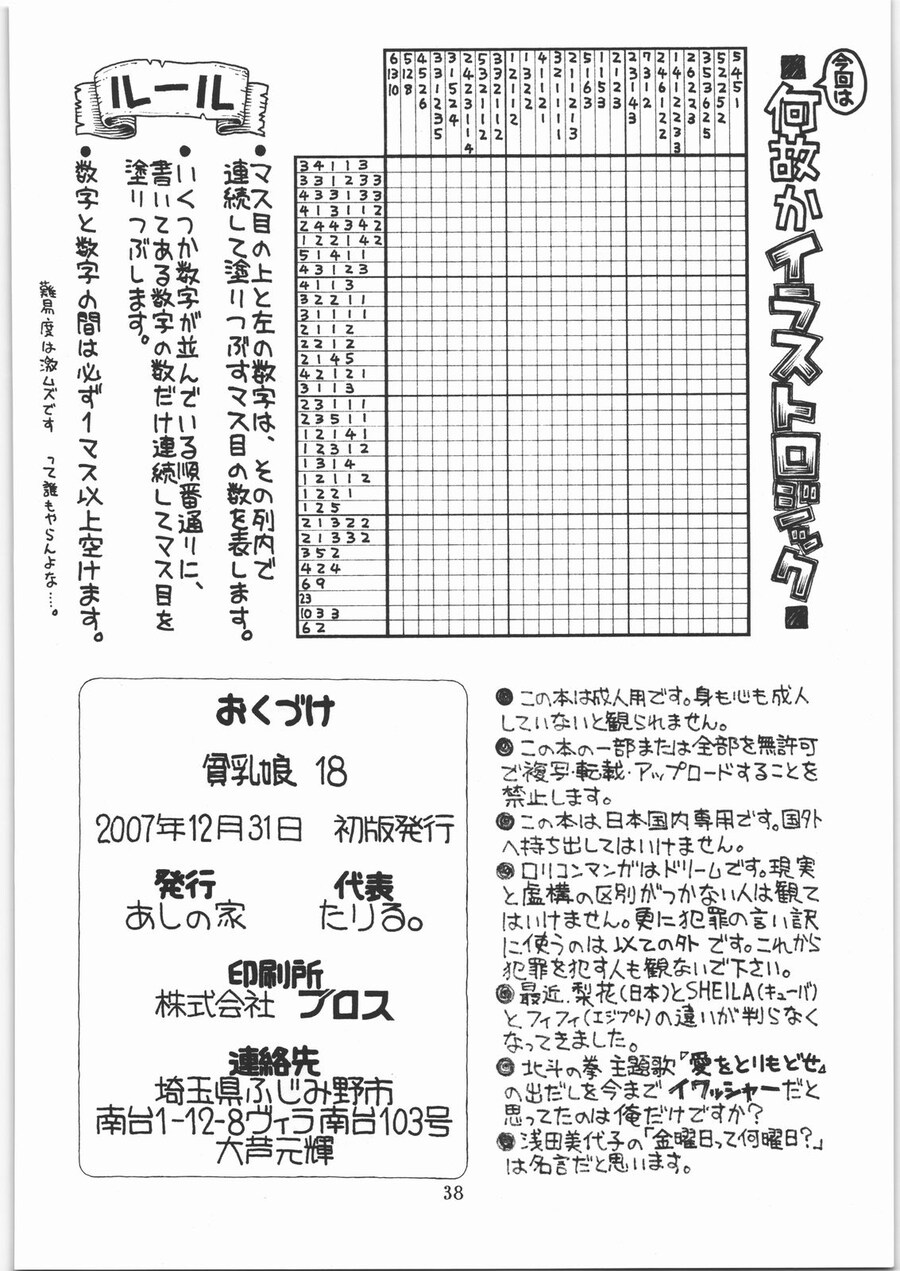 今回は
何故かイラストロジック
ルール
●マス目の上と左の数字は、その列内で
連続して塗りつぶすマス目の数を表します。
●いくつか数字が並んでいる順番通りに、
書いてある数字の数だけ連続してマス目を
塗りつぶします。
●数字と数字の間は必ず1マス以上空けます。
難易度は激ムズです って誰もやらんよな…。
3 4 1 1 3
3 3 1 2 3 3
4 3 3 1 3 3
4 1 3 1 1 2
2 4 4 3 4 2
1 2 2 1 4 2
5 1 4 1 1
4 3 1 2 3
4 1 1 3
3 2 2 1 1
3 1 1 1 1
2 1 1 2
2 2 1 2
2 1 4 5
4 2 1 2 1
3 1 1 3
2 3 1 1 1
2 3 5 1 1
1 2 1 4 1
1 2 3 1 2
1 3 1 4
1 2 1 1 2
1 2 2 1
1 2 5
2 1 3 2 2
2 1 3 3 2
3 5 2
4 2 4
6 9
23
10 3 3
6 2
●この本は成人用です。身も心も成人
していないと観られません。
●この本の一部または全部を無許可
で複写・転載・アップロードすることを
禁止します。
●この本は、日本国内専用です。国外
へ持ち出してはいけません。
●ロリコンマンガはドリームです。現実
と虚構の区別がつかない人は観て
はいけません。更に犯罪の言い訳
に使うのは以ての外です。これから
犯罪を犯す人も観ないで下さい。
●最近、梨花(日本)とSHEILA(キューバ)
とフィフィ(エジプト)の違いが判らなく
なってきました。
●北斗の拳 主題歌「愛をとりもどせ」
の出だしを今までイワッシャーだと
思ってたのは俺だけですか?
●浅田美代子の「金曜日って何曜日?」
は名言だと思います。
おくづけ
貧乳娘 18
2007年12月31日 初版発行
発行 代表
あしの家 たりる。
印刷所
株式会社 ブロス
連絡先
埼玉県ふじみ野市
南台1-12-8ヴィラ南台103号
大芦元輝
38